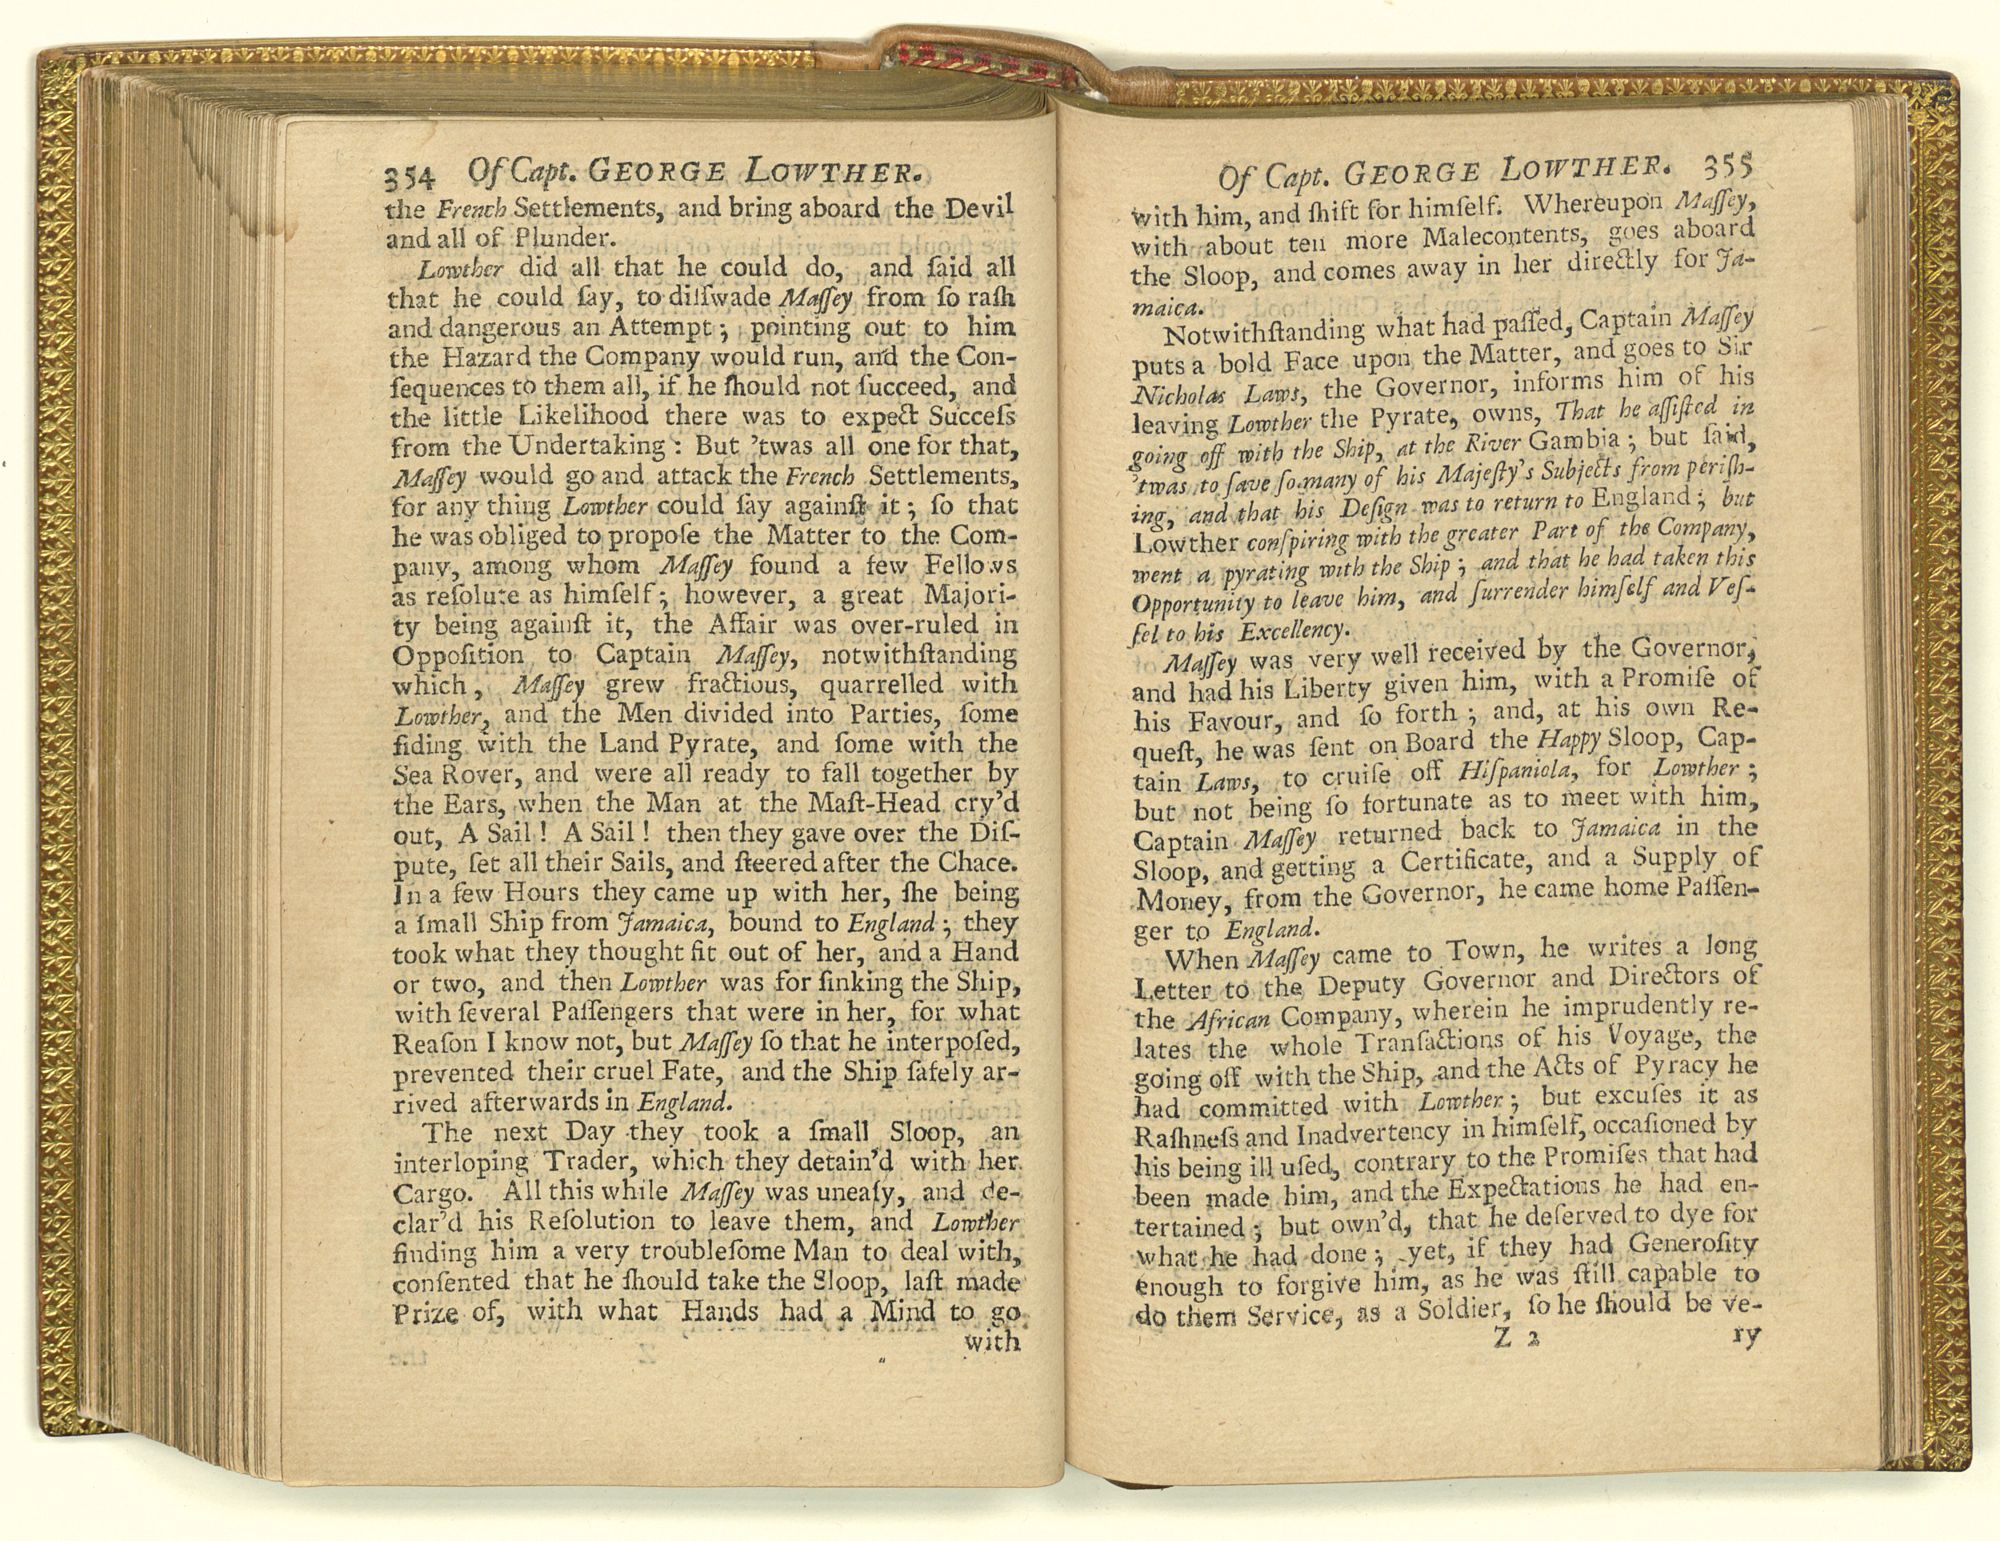 354 Of Capt. GEORGE LOWTHER.
the French Settlements, and bring aboard the Devil
and all of Plunder.
Lowther did all that he could do, and ſaid all
that he could ſay, to diſſwade Maſſey from ſo raſh
and dangerous an Attempt; pointing out to him
the Hazard the Company would run, and the Con-
ſequences to them all, if he ſhould not ſucceed, and
the little Likelihood there was to expect Succeſs
from the Undertaking: But 'twas all one for that,
Maſſey would go and attack the French Settlements,
for any thing Lowther could ſay againſt it; ſo that
he was obliged to propoſe the Matter to the Com-
pany, among whom Maſſey found a few Fellows
as reſolute as himſelf; however, a great Majori-
ty being againſt it, the Affair was over-ruled in
Oppoſition to Captain Maſſey, notwithſtanding
which, Maſſey grew fractious, quarrelled with
Lowther, and the Men divided into Parties, ſome
ſiding with the Land Pyrate, and ſome with the
Sea Rover, and were all ready to fall together by
the Ears, when the Man at the Maſt-Head cry'd
out, A Sail! A Sail! then they gave over the Diſ-
pute, ſet all their Sails, and ſteered after the Chace.
In a few Hours they came up with her, ſhe being
a ſmall Ship from Jamaica, bound to England; they
took what they thought fit out of her, and a Hand
or two, and then Lowther was for ſinking the Ship,
with ſeveral Paſſengers that were in her, for what
Reaſon I know not, but Maſſey ſo that he interpoſed,
prevented their cruel Fate, and the Ship ſafely ar-
rived afterwards in England.
The next Day they took a ſmall Sloop, an
interloping Trader, which they detain'd with her
Cargo. All this while Maſſey was uneaſy, and de-
clar'd his Reſolution to leave them, and Lowther
finding him a very troubleſome Man to deal with,
conſented that he ſhould take the Sloop, laſt made
Prize of, with what Hands had a Mind to go
with
Of Capt. GEORGE LOWTHER. 355
with him, and ſhift for himſelf. Whereupon Maſſey,
with about ten more Malecontents, goes aboard
the Sloop, and comes away in her directly for Ja-
maica.
Notwithſtanding what had paſſed, Captain Maſſey
puts a bold Face upon the Matter, and goes to Sir
Nicholas Laws, the Governor, informs him of his
leaving Lowther the Pyrate, owns, That he aſſiſted in
going off with the Ship, at the River Gambia; but ſaid,
'twas to ſave ſo many of his Majeſty's Subjects from periſh-
ing, and that his Deſign was to return to England; but
Lowther conſpiring with the greater Part of the Company,
went a pyrating with the Ship; and that he had taken this
Opportunity to leave him, and ſurrender himſelf and Veſ-
ſel to his Excellency.
Maſſey was very well received by the Governor,
and had his Liberty given him, with a Promiſe of
his Favour, and ſo forth; and, at his own Re-
queſt, he was ſent on Board the Happy Sloop, Cap-
tain Laws, to cruiſe off Hiſpaniola, for Lowther;
but not being ſo fortunate as to meet with him,
Captain Maſſey returned back to Jamaica in the
Sloop, and getting a Certificate, and a Supply of
Money, from the Governor, he came home Paſſen-
ger to England.
When Maſſey came to Town, he writes a long
Letter to the Deputy Governor and Directors of
the African Company, wherein he imprudently re-
lates the whole Tranſactions of his Voyage, the
going off with the Ship, and the Acts of Pyracy he
had committed with Lowther; but excuſes it as
Raſhneſs and Inadvertency in himſelf, occaſioned by
his being ill uſed, contrary to the Promiſes that had
been made him, and the Expectations he had en-
tertained; but own'd, that he deſerved to dye for
what he had done; yet, if they had Generoſity
enough to forgive him, as he was ſtill capable to
do them Service, as a Soldier, ſo he ſhould be ve-
Z 2 ry